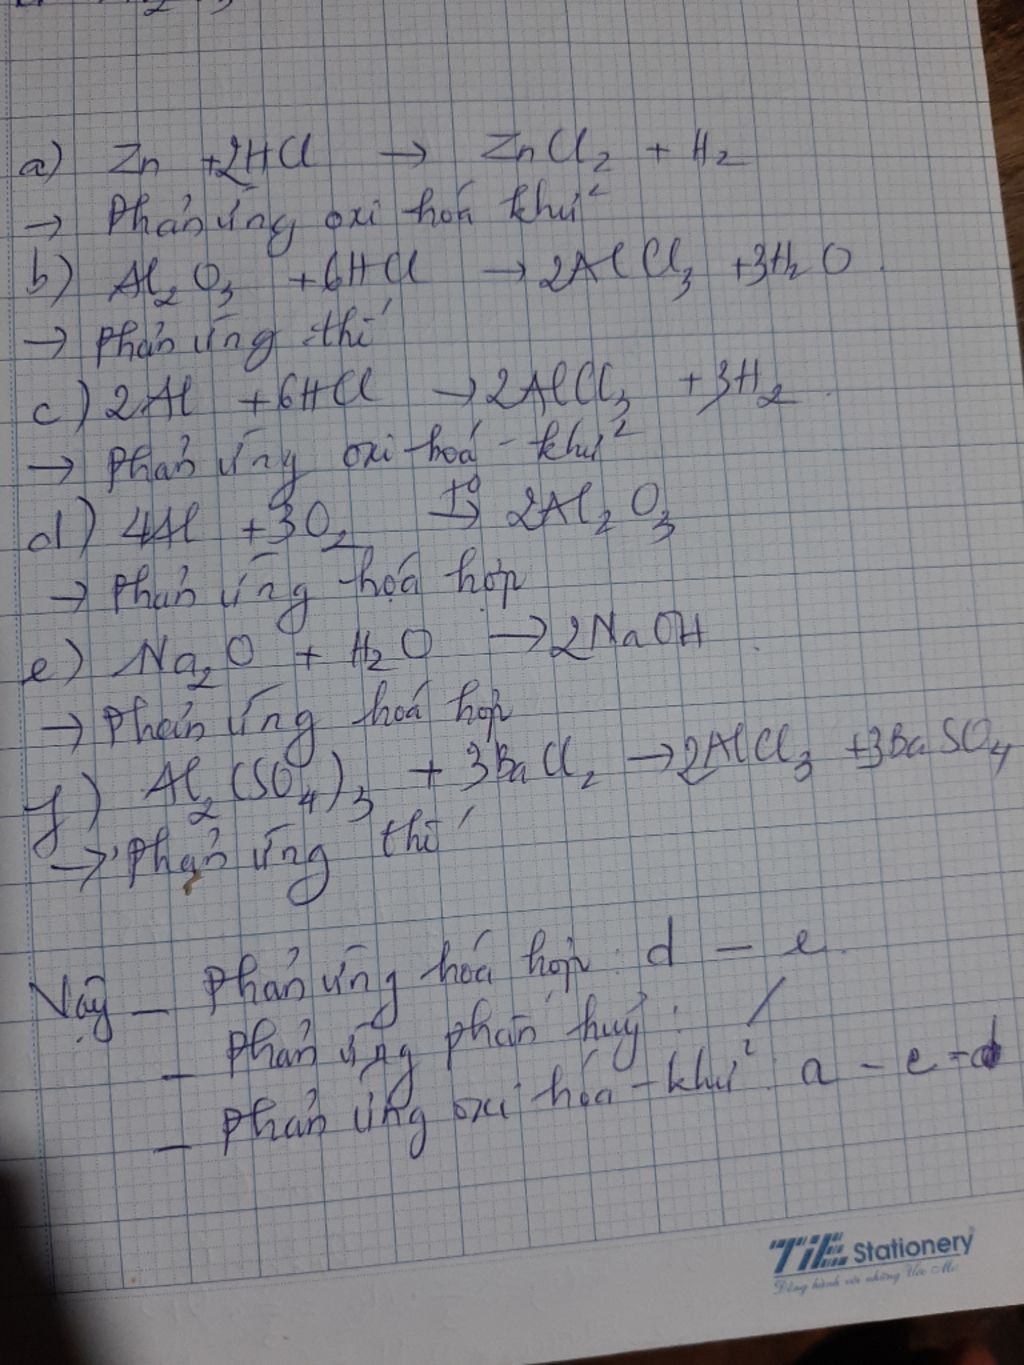 a) Zn + 2HCl → ZnCl₂ + H₂
→ Phản ứng oxi hoá khử
b) Al₂O₃ + 6HCl → 2AlCl₃ + 3H₂O.
→ Phản ứng thế
c) 2Al + 6HCl → 2AlCl₃ + 3H₂.
→ Phản ứng oxi hoá - khử
d) 4Al + 3O₂ →(t°) 2Al₂O₃
→ Phản ứng hoá hợp
e) Na₂O + H₂O → 2NaOH.
→ Phản ứng hoá hợp
f) Al₂(SO₄)₃ + 3BaCl₂ → 2AlCl₃ + 3BaSO₄
→ Phản ứng thế
Vậy – Phản ứng hoá hợp: d – e.
– Phản ứng phân huỷ: /
– Phản ứng oxi hóa – khử: a – c – d
TiE Stationery
Đồng hành với những Ước Mơ